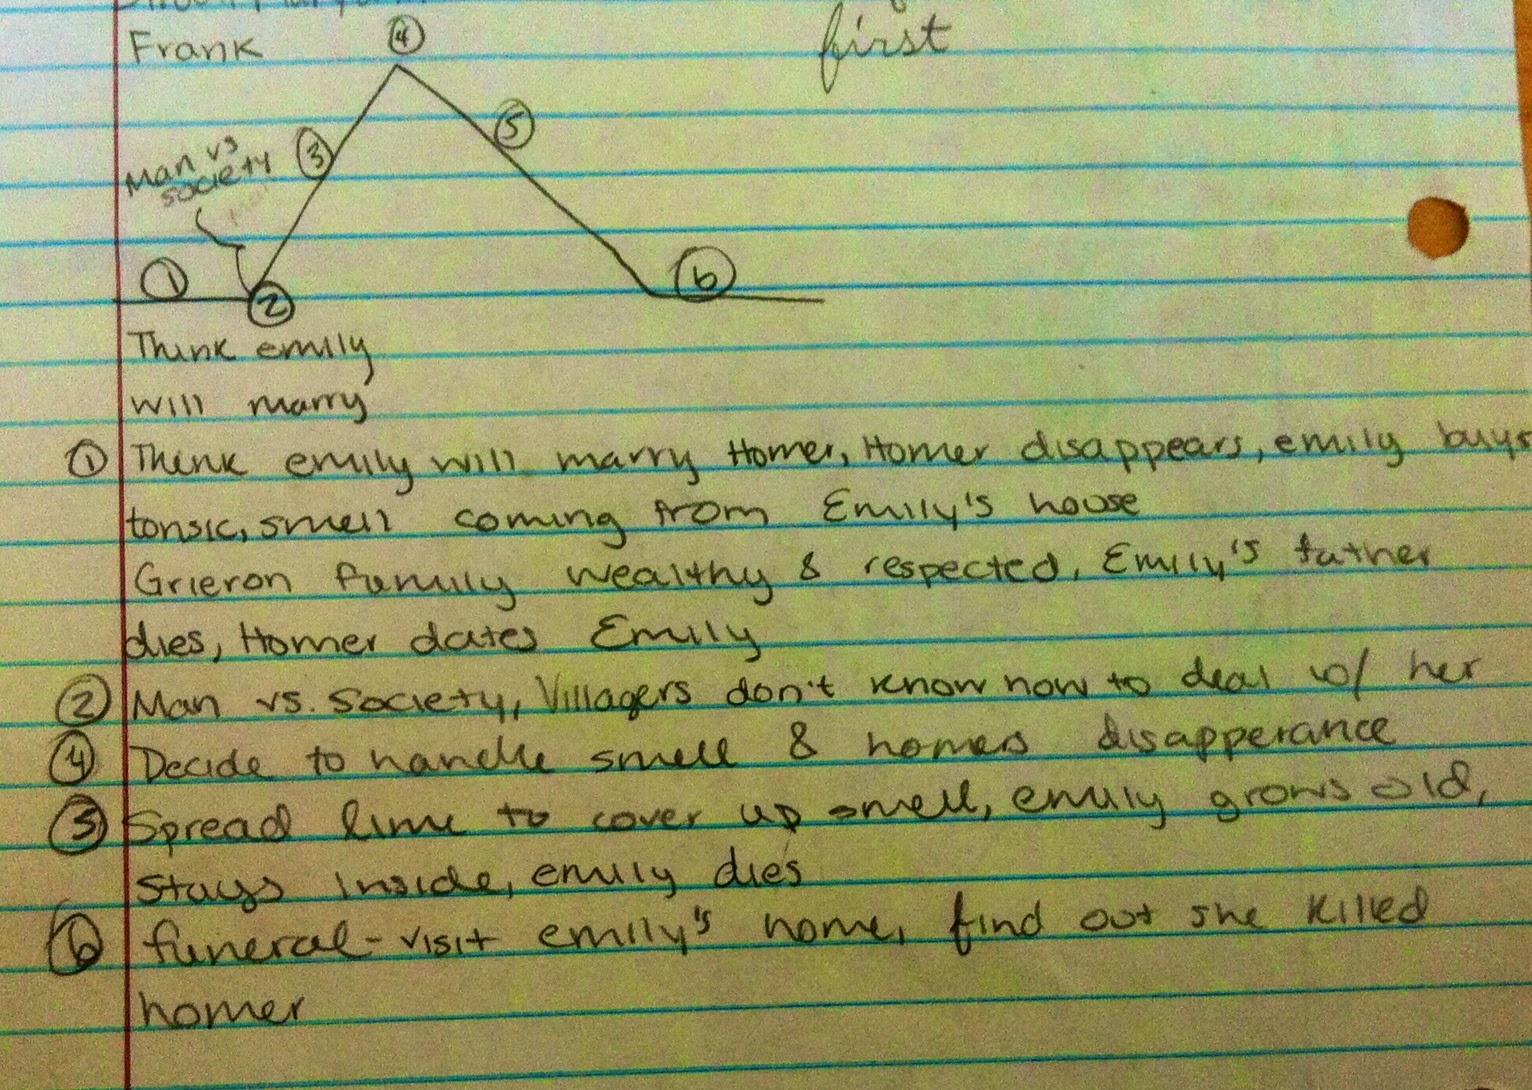 Frank
first
④
⑤
Man vs
society
③
①
②
⑥
Think emily
will marry
① Think emily will marry Homer, Homer disappears, emily buys
tonsic, smell coming from Emily's house
Grieron family wealthy & respected, Emily's father
dies, Homer dates Emily
② Man vs. Society, Villagers don't know how to deal w/ her
④ Decide to handle smell & homers disapperance
⑤ Spread lime to cover up smell, emily grows old,
stays inside, emily dies
⑥ funeral - visit emily's home, find out she killed
homer